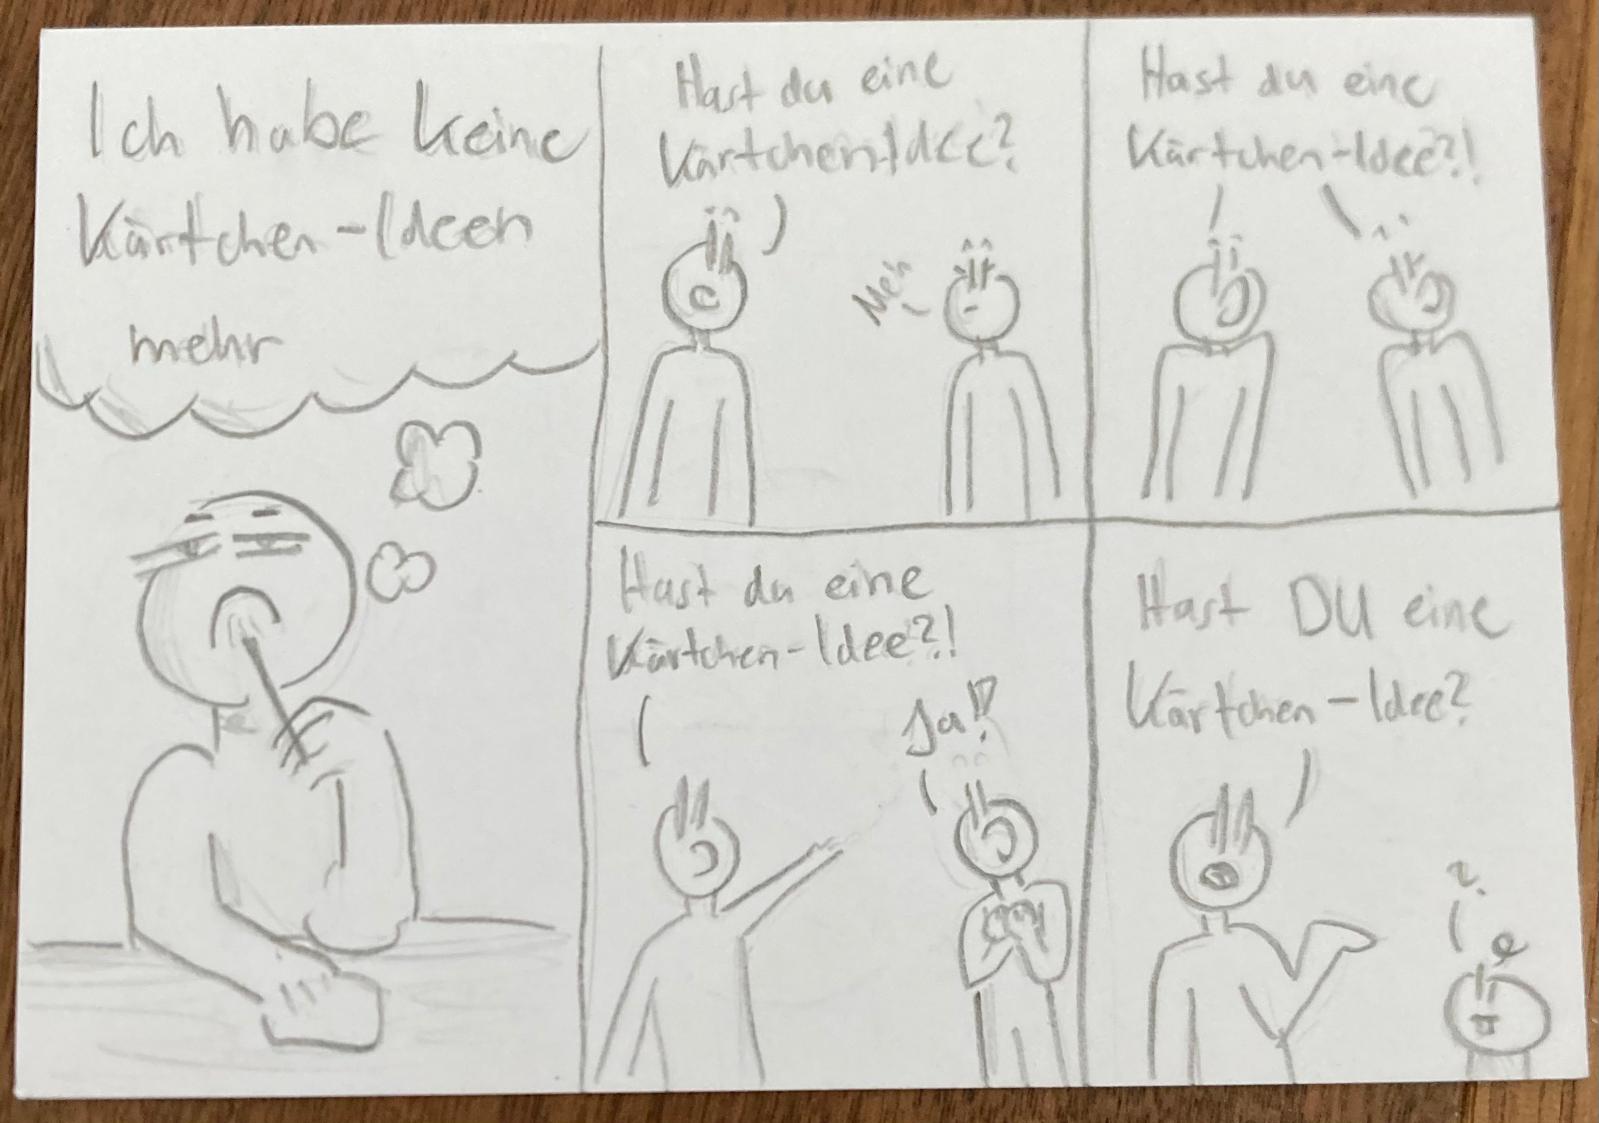 Ich habe keine
Kärtchen-Ideen
mehr
Hast du eine
Kärtchen-Idee?
Meh
Hast du eine
Kärtchen-Idee?!
Hast du eine
Kärtchen-Idee?!
Ja!!
Hast DU eine
Kärtchen-Idee?
?